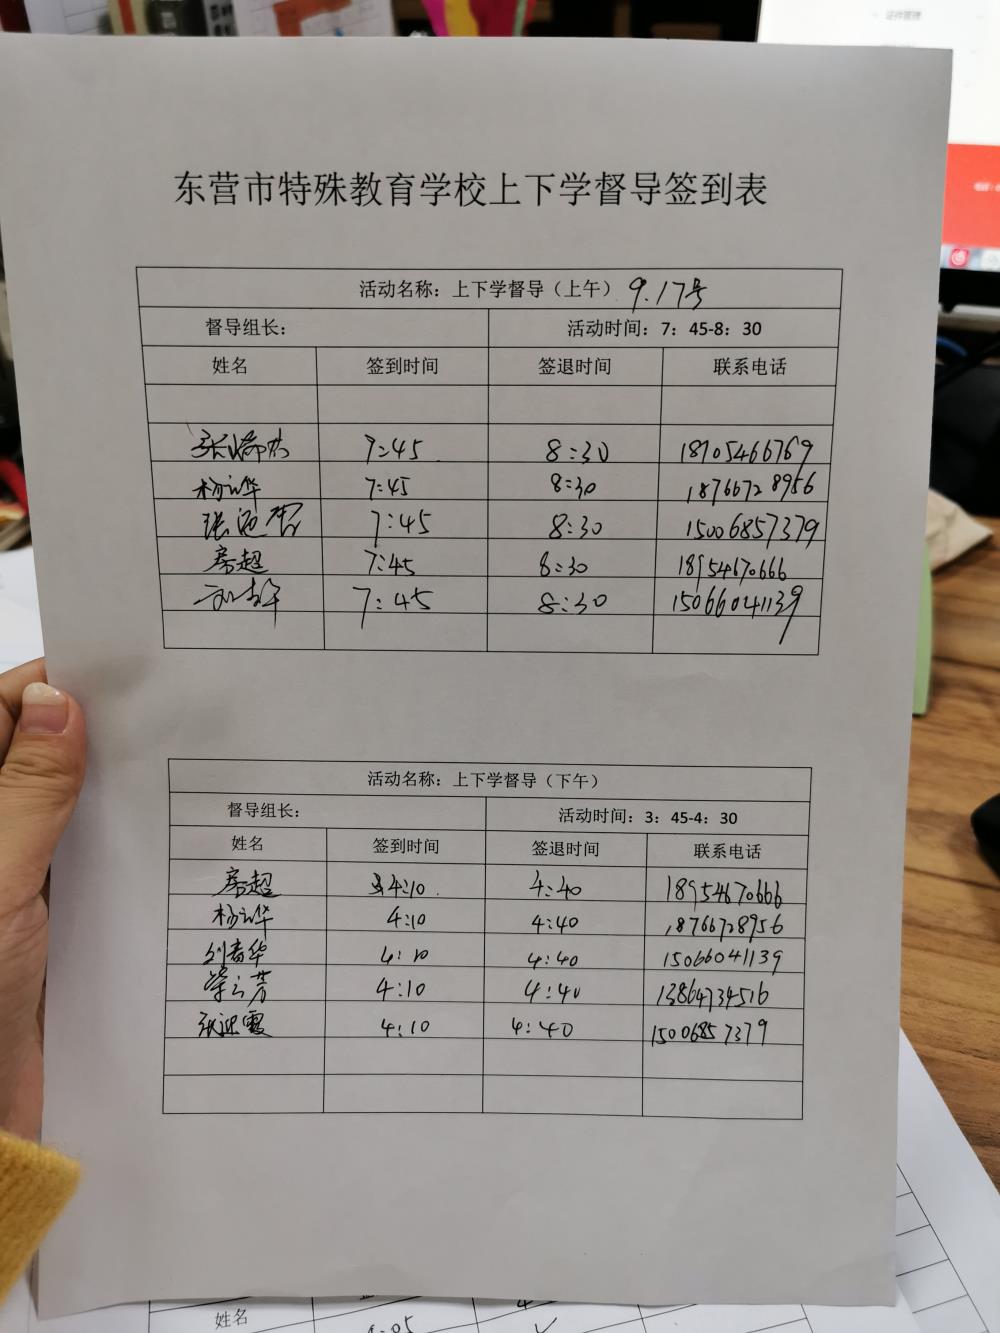 证件管理
东营市特殊教育学校上下学督导签到表
活动名称：上下学督导（上午） 9.17号
督导组长： 活动时间：7：45-8：30
姓名 签到时间 签退时间 联系电话
7:45 8:30 18705466769
7:45 8:30 18766728956
7:45 8:30 15006857379
房超 7:45 8:30 18954670666
7:45 8:30 15066041139
活动名称：上下学督导（下午）
督导组长： 活动时间：3：45-4：30
姓名 签到时间 签退时间 联系电话
房超 4:10 4:40 18954670666
4:10 4:40 18766728956
刘春华 4:10 4:40 15066041139
4:10 4:40 13864734516
张迎霞 4:10 4:40 15006857379
姓名